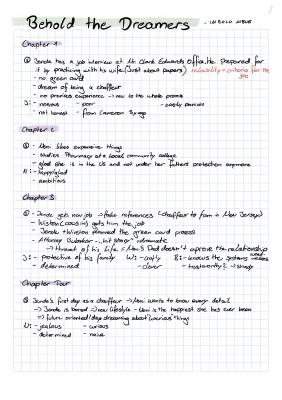 Behold the Dreamers - IMBOLO MBUE
Chapter 1
Jende has a job interview at Mr. Clark Edwards Office. He prepared for
it by practicing with his wife. (Just about papers) reliability = criteria for the
job
- no green card
- dream of being a chauffeur
- no previous experience → now is the whole
J: - nervous - poor - easily
- not honest - from Cameroon
Chapter 2
- Neni likes expensive things
- studies Pharmacy at a local community college
- glad she is in the US and not under her fathers protection anymore
N: - happy/glad
- ambitious
Chapter 3
- Jende gets new job → fake references (chauffeur to fam in New Jersey)
- Winston (cousin) gets him the job
- Jende + Winston planned the green card process
- Attorney Bubakar - dramatic
→ threat of his Life = Neni's Dad doesn't aprove the relationship
J: - protective of his family W: - crafty B: - knows the systems
- determined - clever - trustworthy?
Chapter Four
Jende's first day as a chauffeur → Neni wants to know every detail
→ Jende is → new lifestyle - Neni is the happiest she has ever been
→ future oriented / day dreaming about luxurious things
N: - jealous - curious
- determined - naive